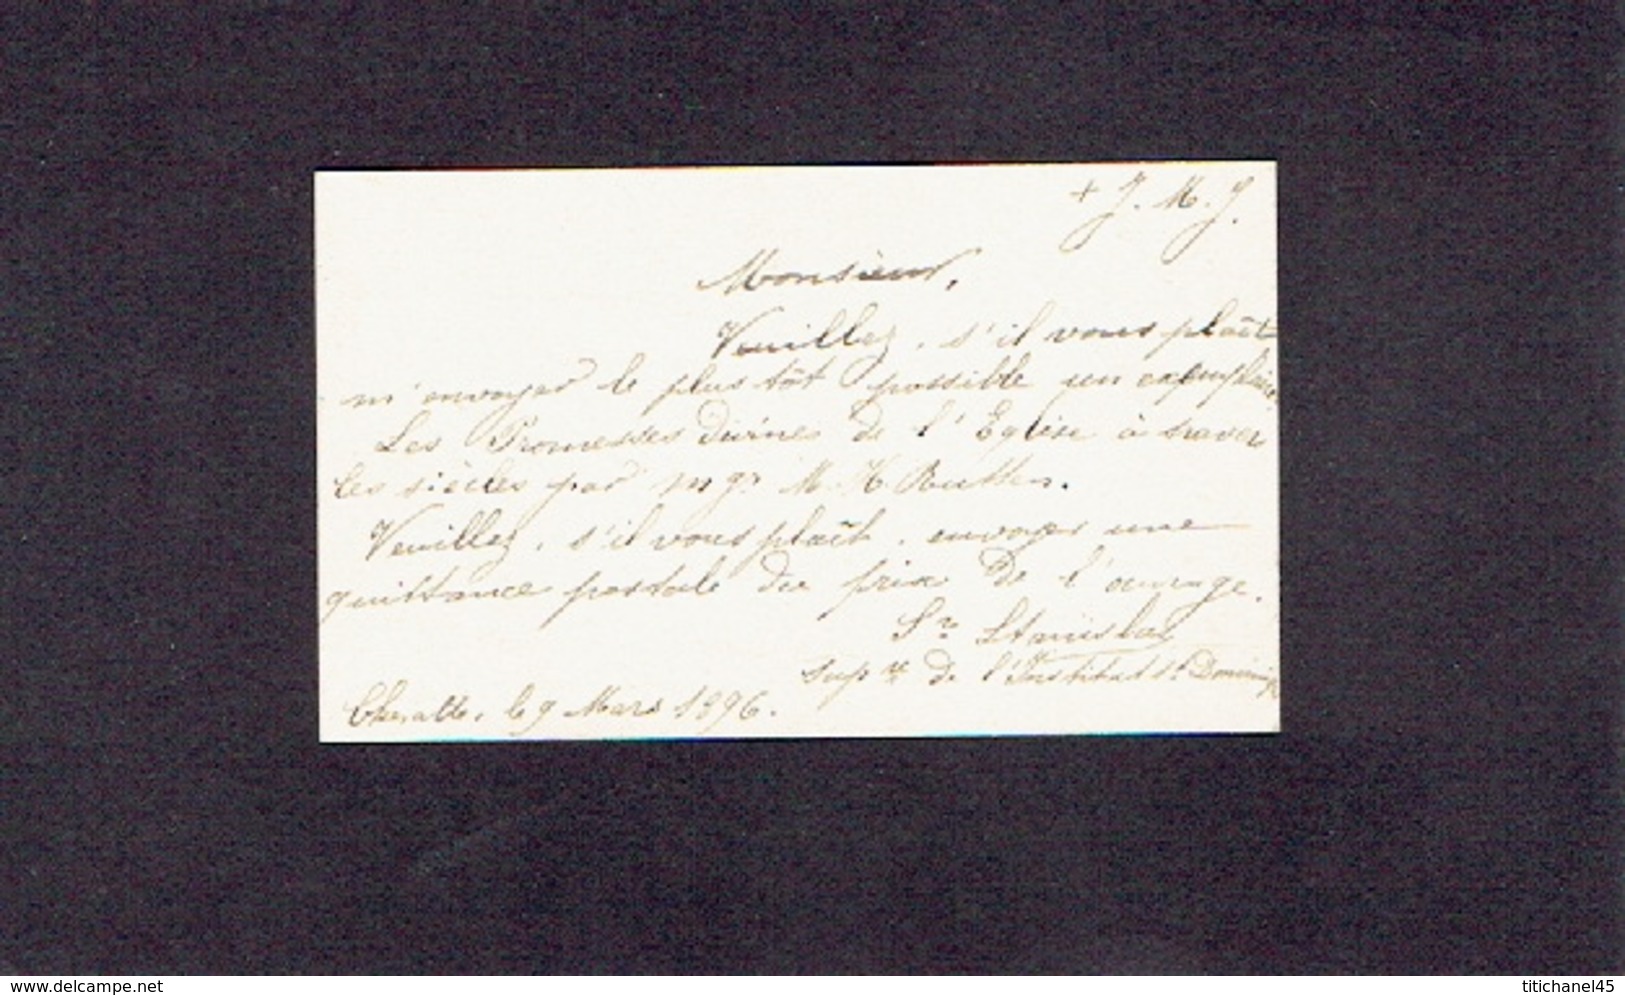 + J. M. J.
Monsieur,
Veuillez, s'il vous plaît
m'envoyer le plus tôt possible un exemplaire
Les Promesses divines de l'Eglise à traver
les siècles par Mgr M. H Rutten.
Veuillez, s'il vous plaît, envoyer une
quittance postale du prix de l'ouvrage.
Sr Stanislas
supre de l'Institut St Dominiq
Cheratte, le 9 Mars 1896.
delcampe.net
titichanel45